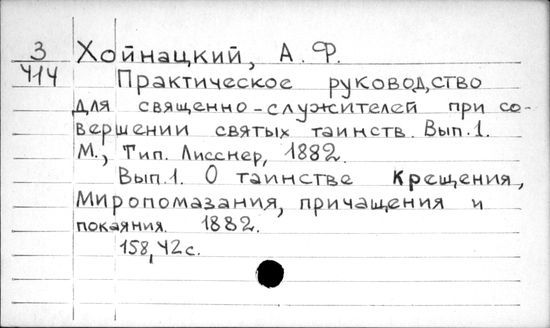 3 Хойнацкий, А. Ф.
414 Практическое руководство
для священно-служителей при со-
вершении святых таинств. Вып.1.
М., Тип. Лисснер, 1882.
Вып.1. О таинстве Крещения,
Миропомазания, причащения и
покаяния. 1882.
158,42с.